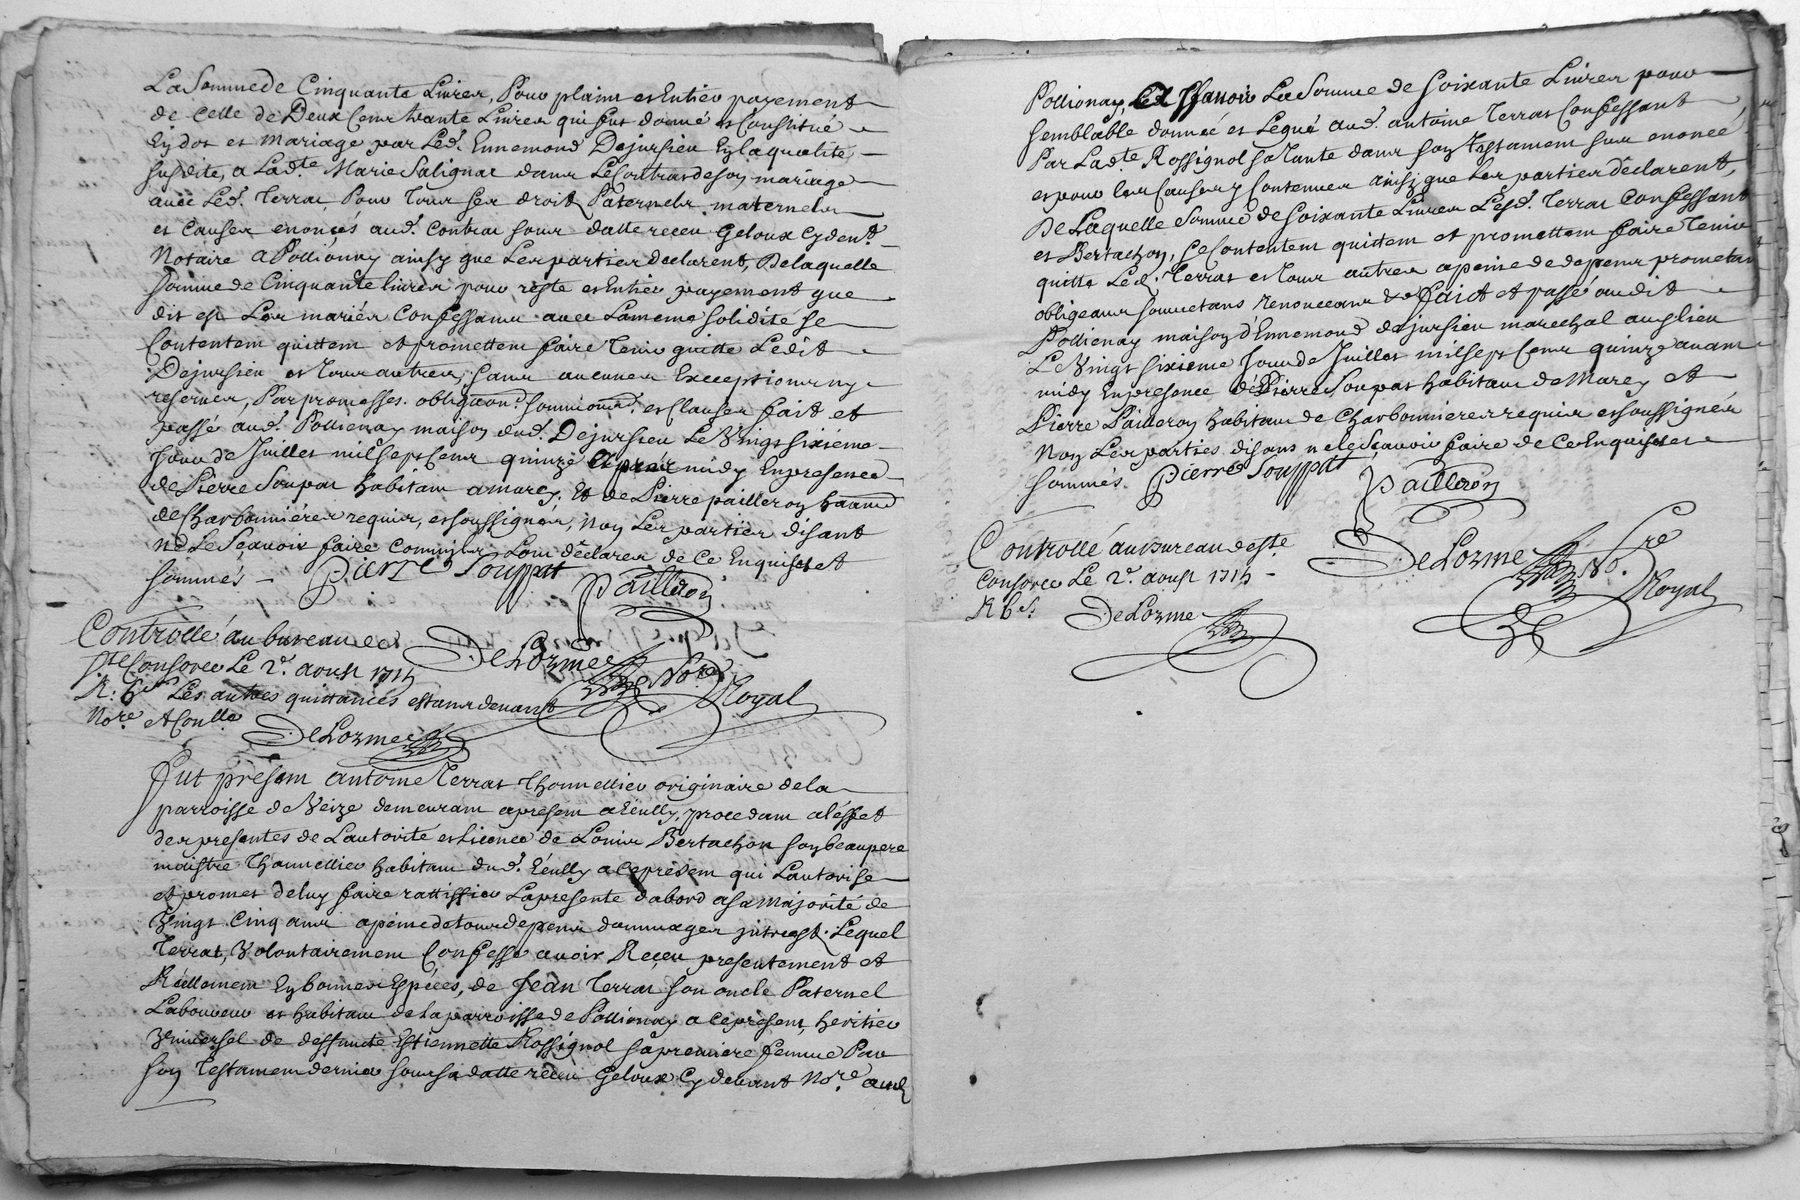 La Somme de Cinquante Livres, Pour plain et Entier payement
de Celle de Deux Cent trante Livres qui fut donné et Constitué
En dot et Mariage par Led. Ennemond Dejussieu En la qualité
susdite, a Lad.te Marie Salignat dans Le Contrat de son mariage
avec Led. Terrat, Pour Tous ses droits Paternels maternels
et Causes enoncés aud. Contrat sous datte receu Geloux Cydevt.
Notaire a Pollionay ainsy que Les parties declarent, De laquelle
somme de Cinquante livres pour reste et Entier payement que
dit est Les mariés Confessants avec La meme solidité se
Contentent quittent et promettent faire Tenir quitte Ledit
Dejussieu et Tous autres, sans aucunes Exceptions ny
reserves, Par promesses obligaons. soumions. et Clauses fait et
passé aud. Pollionay maison dud. Dejussieu Le Vingt sixiéme
Jour de Juillet mil sept Cent quinze Apres midy En presence
de Pierre Soupat habitant a marcy, Et de Pierre pailleron habitant
de Charbonniéres requis, et soussignés, Non Les parties disant
ne Le Sçavoir faire Comme ils L'ont déclarer de Ce Enquis et
sommés - Pierre Souppat
Pailleron
Controllé au bureau de
Ste Consorce Le 2e. aoust 1715
DeLorme Nore Royal
R: 6s. Les autres quittances estant devant
Nore et Conlle
DeLorme
Fut présent antoine Terrat Thonnellier originaire de la
parroisse de Veize demeurant a present a Eeully, procedant a l'éffet
des presentes de L'autorité et Licence de Louis Bertachon son beaupere
maistre Thonnellier habitant dud. Eeully a Ce présent qui L'autorise
et promet de luy faire rattiffier La presente d'abord a sa Majorité de
Vingt Cinq ans a peine de tous depens dommages intrests. Lequel
Terrat, Volontairement Confesse avoir Receu presentement et
Réellement En bonnes Espéces, de Jean Terrat son oncle Paternel
Laboureur et habitant de La parroisse de Pollionay a Ce present, heritier
Universel de deffuncte Estiennette Rossignol sa premiere femme Par
son Testament dernier sous sa datte receu Geloux Cy devant Nore. aud.
Pollionay, Est Assavoir La Somme de Soixante Livres pour
semblable donnée et Legué aud. antoine Terrat Confessant
Par Ladte Rossignol sa Tante dans son Testament sus enoncé
et pour Les Causes y Contenues ainsy que Les parties déclarent,
De Laquelle Somme de Soixante Livres Lesd. Terrat Confessant
et Bertachon, se Contentent quittent et promettent faire Tenir
quitte Led. Terrat et Tous autres a peine de depens promettant
obligeant soumettans renonceans &a fait et passé audit
Pollionay maison d'Ennemond dejussieu marechal aud lieu
Le Vingt sixieme Jour de Juillet mil sept Cent quinze avant
midy En presence de Pierre Soupat habitant de Marcy et
Pierre Pailleron habitant de Charbonnieres requis et soussignés
Non Les parties disans ne le Scavoir faire de Ce Enquis et
sommés. Pierre Souppat
Pailleron
Controllé au bureau de Ste
Consorce Le 2e. aoust 1715 -
DeLorme Nore Royal
R 6s.
DeLorme